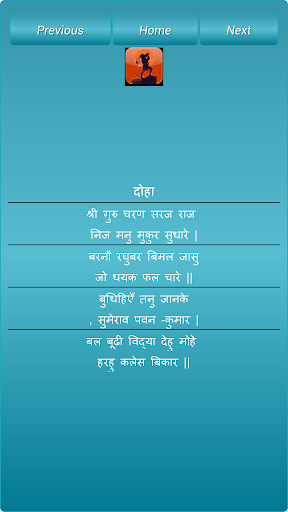 Previous Home Next
दोहा
श्री गुरु चरण सरज राज
निज मनु मुकुर सुधारे |
बरनौ रघुबर बिमल जासु
जो धयक फल चारे ||
बुधिहिएँ तनु जानके
, सुमेराव पवन -कुमार |
बल बूढी विद्या देहु मोहे
हरहु कलेस बिकार ||